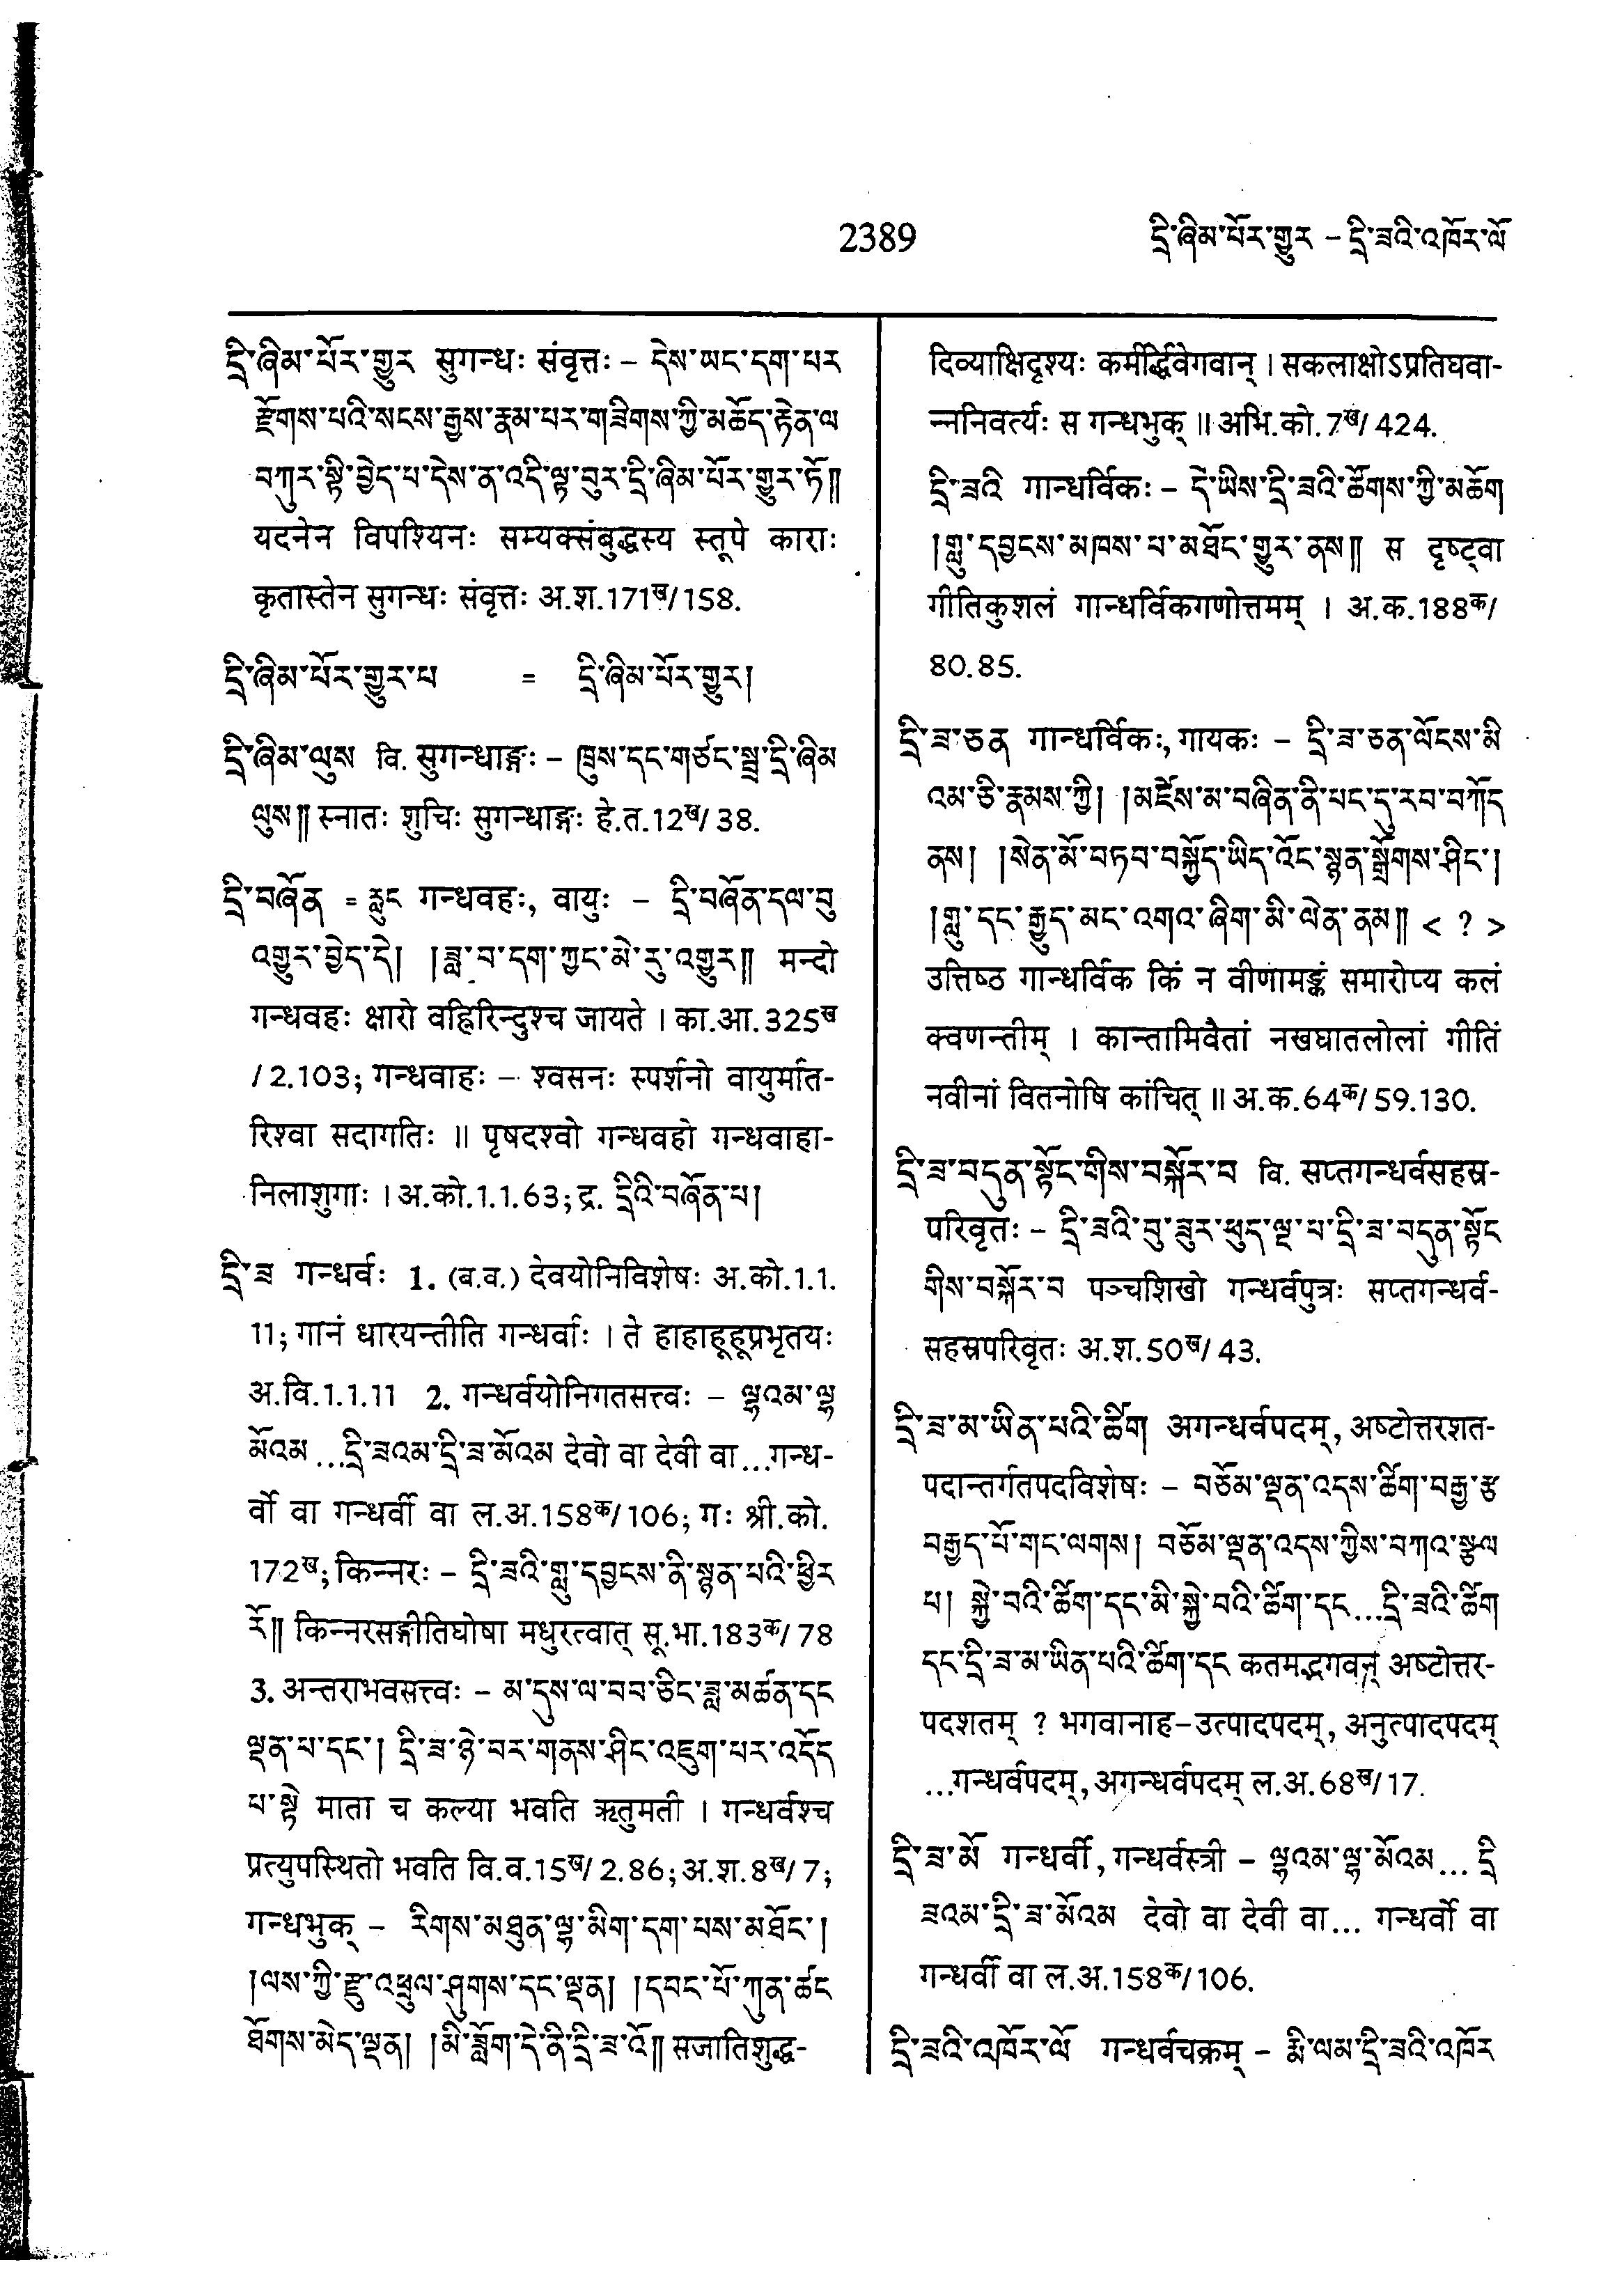 2389
དྲི་ཞིམ་པོར་གྱུར – དྲི་ཟའི་འཁོར་ལོ
དྲི་ཞིམ་པོར་གྱུར सुगन्धः संवृत्तः – དེས་ཡང་དག་པར
རྫོགས་པའི་སངས་རྒྱས་རྣམ་པར་གཟིགས་ཀྱི་མཆོད་རྟེན་ལ
བཀུར་སྟི་བྱེད་པ་དེས་ན་འདི་ལྟ་བུར་དྲི་ཞིམ་པོར་གྱུར་ཏོ༎
यदनेन विपश्यिनः सम्यक्संबुद्धस्य स्तूपे काराः
कृतास्तेन सुगन्धः संवृत्तः अ.श.171ख/158.
དྲི་ཞིམ་པོར་གྱུར་པ = དྲི་ཞིམ་པོར་གྱུར།
དྲི་ཞིམ་ལུས वि. सुगन्धाङ्गः – ཁྲུས་དང་གཙང་སྦྲ་དྲི་ཞིམ
ལུས༎ स्नातः शुचिः सुगन्धाङ्गः हे.त.12ख/38.
དྲི་བཞོན = རླུང गन्धवहः, वायुः – དྲི་བཞོན་དལ་བུ
འགྱུར་བྱེད་དེ། །ཟླ་བ་དག་ཀྱང་མེ་རུ་འགྱུར༎ मन्दो
गन्धवहः क्षारो वह्निरिन्दुश्च जायते । का.आ.325ख
/2.103; गन्धवाहः – श्वसनः स्पर्शनो वायुर्मात-
रिश्वा सदागतिः ॥ पृषदश्वो गन्धवहो गन्धवाहा-
निलाशुगाः । अ.को.1.1.63; द्र. དྲིའི་བཞོན་པ།
དྲི་ཟ गन्धर्वः 1. (ब.व.) देवयोनिविशेषः अ.को.1.1.
11; गानं धारयन्तीति गन्धर्वाः । ते हाहाहूहूप्रभृतयः
अ.वि.1.1.11 2. गन्धर्वयोनिगतसत्त्वः – ལྷའམ་ལྷ
མོའམ ...དྲི་ཟའམ་དྲི་ཟ་མོའམ देवो वा देवी वा...गन्ध-
र्वो वा गन्धर्वी वा ल.अ.158क/106; गः श्री.को.
172ख; किन्नरः – དྲི་ཟའི་གླུ་དབྱངས་ནི་སྙན་པའི་ཕྱིར
རོ༎ किन्नरसङ्गीतिघोषा मधुरत्वात् सू.भा.183क/78
3. अन्तराभवसत्त्वः – མ་དུས་ལ་བབ་ཅིང་ཟླ་མཚན་དང
ལྡན་པ་དང་། དྲི་ཟ་ཉེ་བར་གནས་ཤིང་འཇུག་པར་འདོད
པ་སྟེ माता च कल्या भवति ऋतुमती । गन्धर्वश्च
प्रत्युपस्थितो भवति वि.व.15ख/2.86; अ.श.8ख/7;
गन्धभुक् – རིགས་མཐུན་ལྷ་མིག་དག་པས་མཐོང་།
།ལས་ཀྱི་རྫུ་འཕྲུལ་ཤུགས་དང་ལྡན། །དབང་པོ་ཀུན་ཚང
ཐོགས་མེད་ལྡན། །མི་ཟློག་དེ་ནི་དྲི་ཟ་འོ༎ सजातिशुद्ध-
दिव्याक्षिदृश्यः कर्मर्द्धिवेगवान् । सकलाक्षोऽप्रतिघवा-
न्ननिवर्त्यः स गन्धभुक् ॥ अभि.को.7ख/424.
དྲི་ཟའི गान्धर्विकः – དེ་ཡིས་དྲི་ཟའི་ཚོགས་ཀྱི་མཆོག
།གླུ་དབྱངས་མཁས་པ་མཐོང་གྱུར་ནས༎ स दृष्ट्वा
गीतिकुशलं गान्धर्विकगणोत्तमम् । अ.क.188क/
80.85.
དྲི་ཟ་ཅན गान्धर्विकः, गायकः – དྲི་ཟ་ཅན་ལོངས་མི
འམ་ཅི་རྣམས་ཀྱི། །མཛེས་མ་བཞིན་ནི་པང་དུ་རབ་བཀོད
ནས། །སེན་མོ་བཏབ་བསྐྱོད་ཡིད་འོང་སྙན་སྒྲོགས་ཤིང་།
།གླུ་དང་རྒྱུད་མང་འགའ་ཞིག་མི་ལེན་ནམ༎ < ? >
उत्तिष्ठ गान्धर्विक किं न वीणामङ्कं समारोप्य कलं
क्वणन्तीम् । कान्तामिवैतां नखघातलोलां गीतिं
नवीनां वितनोषि कांचित् ॥ अ.क.64क/59.130.
དྲི་ཟ་བདུན་སྟོང་གིས་བསྐོར་བ वि. सप्तगन्धर्वसहस्र-
परिवृतः – དྲི་ཟའི་བུ་ཟུར་ཕུད་ལྔ་པ་དྲི་ཟ་བདུན་སྟོང
གིས་བསྐོར་བ पञ्चशिखो गन्धर्वपुत्रः सप्तगन्धर्व-
सहस्रपरिवृतः अ.श.50ख/43.
དྲི་ཟ་མ་ཡིན་པའི་ཚིག अगन्धर्वपदम्, अष्टोत्तरशत-
पदान्तर्गतपदविशेषः – བཅོམ་ལྡན་འདས་ཚིག་བརྒྱ་རྩ
བརྒྱད་པོ་གང་ལགས། བཅོམ་ལྡན་འདས་ཀྱིས་བཀའ་སྩལ
པ། སྐྱེ་བའི་ཚིག་དང་མི་སྐྱེ་བའི་ཚིག་དང...དྲི་ཟའི་ཚིག
དང་དྲི་ཟ་མ་ཡིན་པའི་ཚིག་དང कतमद्भगवन् अष्टोत्तर-
पदशतम् ? भगवानाह–उत्पादपदम्, अनुत्पादपदम्
...गन्धर्वपदम्, अगन्धर्वपदम् ल.अ.68ख/17.
དྲི་ཟ་མོ गन्धर्वी, गन्धर्वस्त्री – ལྷའམ་ལྷ་མོའམ... དྲི
ཟའམ་དྲི་ཟ་མོའམ देवो वा देवी वा... गन्धर्वो वा
गन्धर्वी वा ल.अ.158क/106.
དྲི་ཟའི་འཁོར་ལོ गन्धर्वचक्रम् – རྨི་ལམ་དྲི་ཟའི་འཁོར